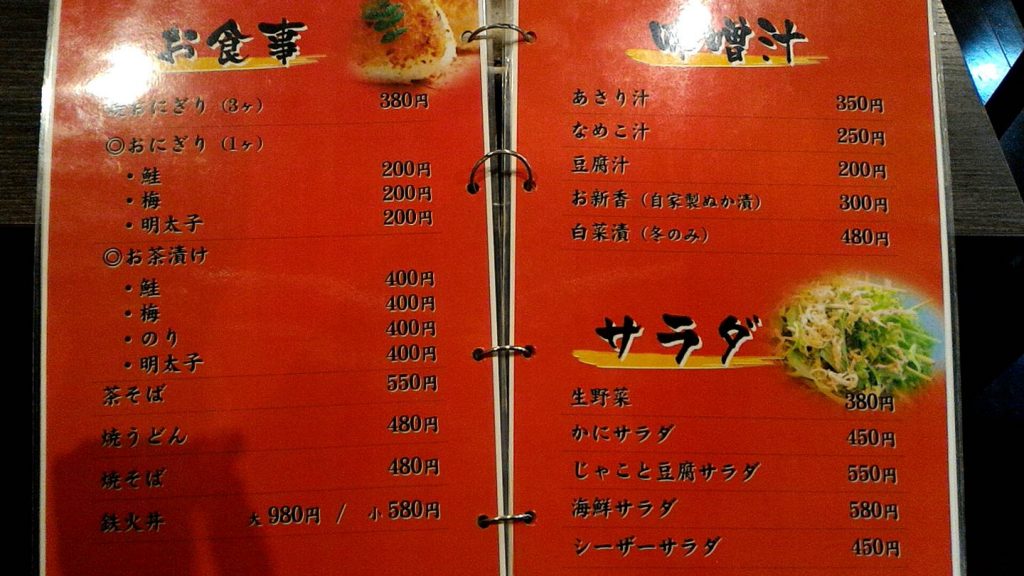 お食事
焼おにぎり（3ヶ） 380円
◎おにぎり（1ヶ）
・鮭 200円
・梅 200円
・明太子 200円
◎お茶漬け
・鮭 400円
・梅 400円
・のり 400円
・明太子 400円
茶そば 550円
焼うどん 480円
焼そば 480円
鉄火丼 大 980円 / 小 580円
味噌汁
あさり汁 350円
なめこ汁 250円
豆腐汁 200円
お新香（自家製ぬか漬） 300円
白菜漬（冬のみ） 480円
サラダ
生野菜 380円
かにサラダ 450円
じゃこと豆腐サラダ 550円
海鮮サラダ 580円
シーザーサラダ 450円